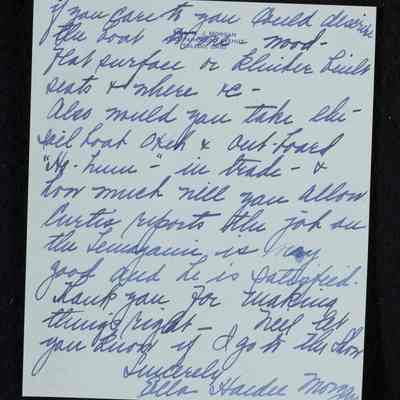 if you care to you could describe
the boat
flat surface or Klinker built
seats & where &c -
Also would you take the
sail boat & out-board
in trade - &
how much will you allow
Curtis reports the job on
the is very
good and he is satisfied.
Thank you for making
things right - Will let
you know if I go to the Show
Sincerely
Ella Hardee Morgan